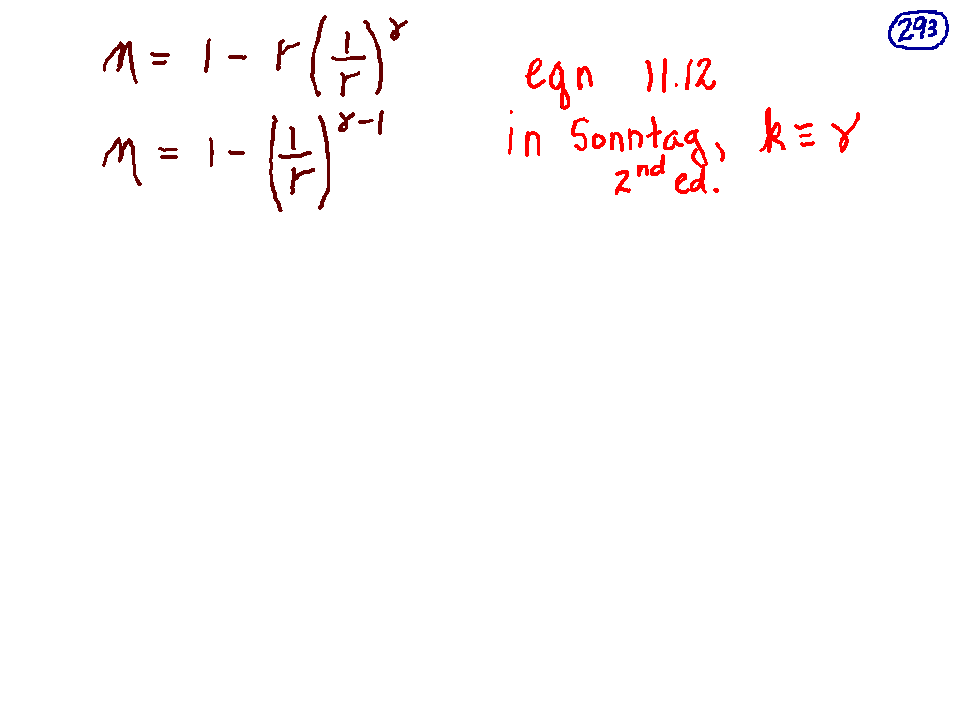 293
η = 1 - r(1/r)^γ
η = 1 - (1/r)^(γ-1)
eqn 11.12
in Sonntag, k ≡ γ
2nd ed.